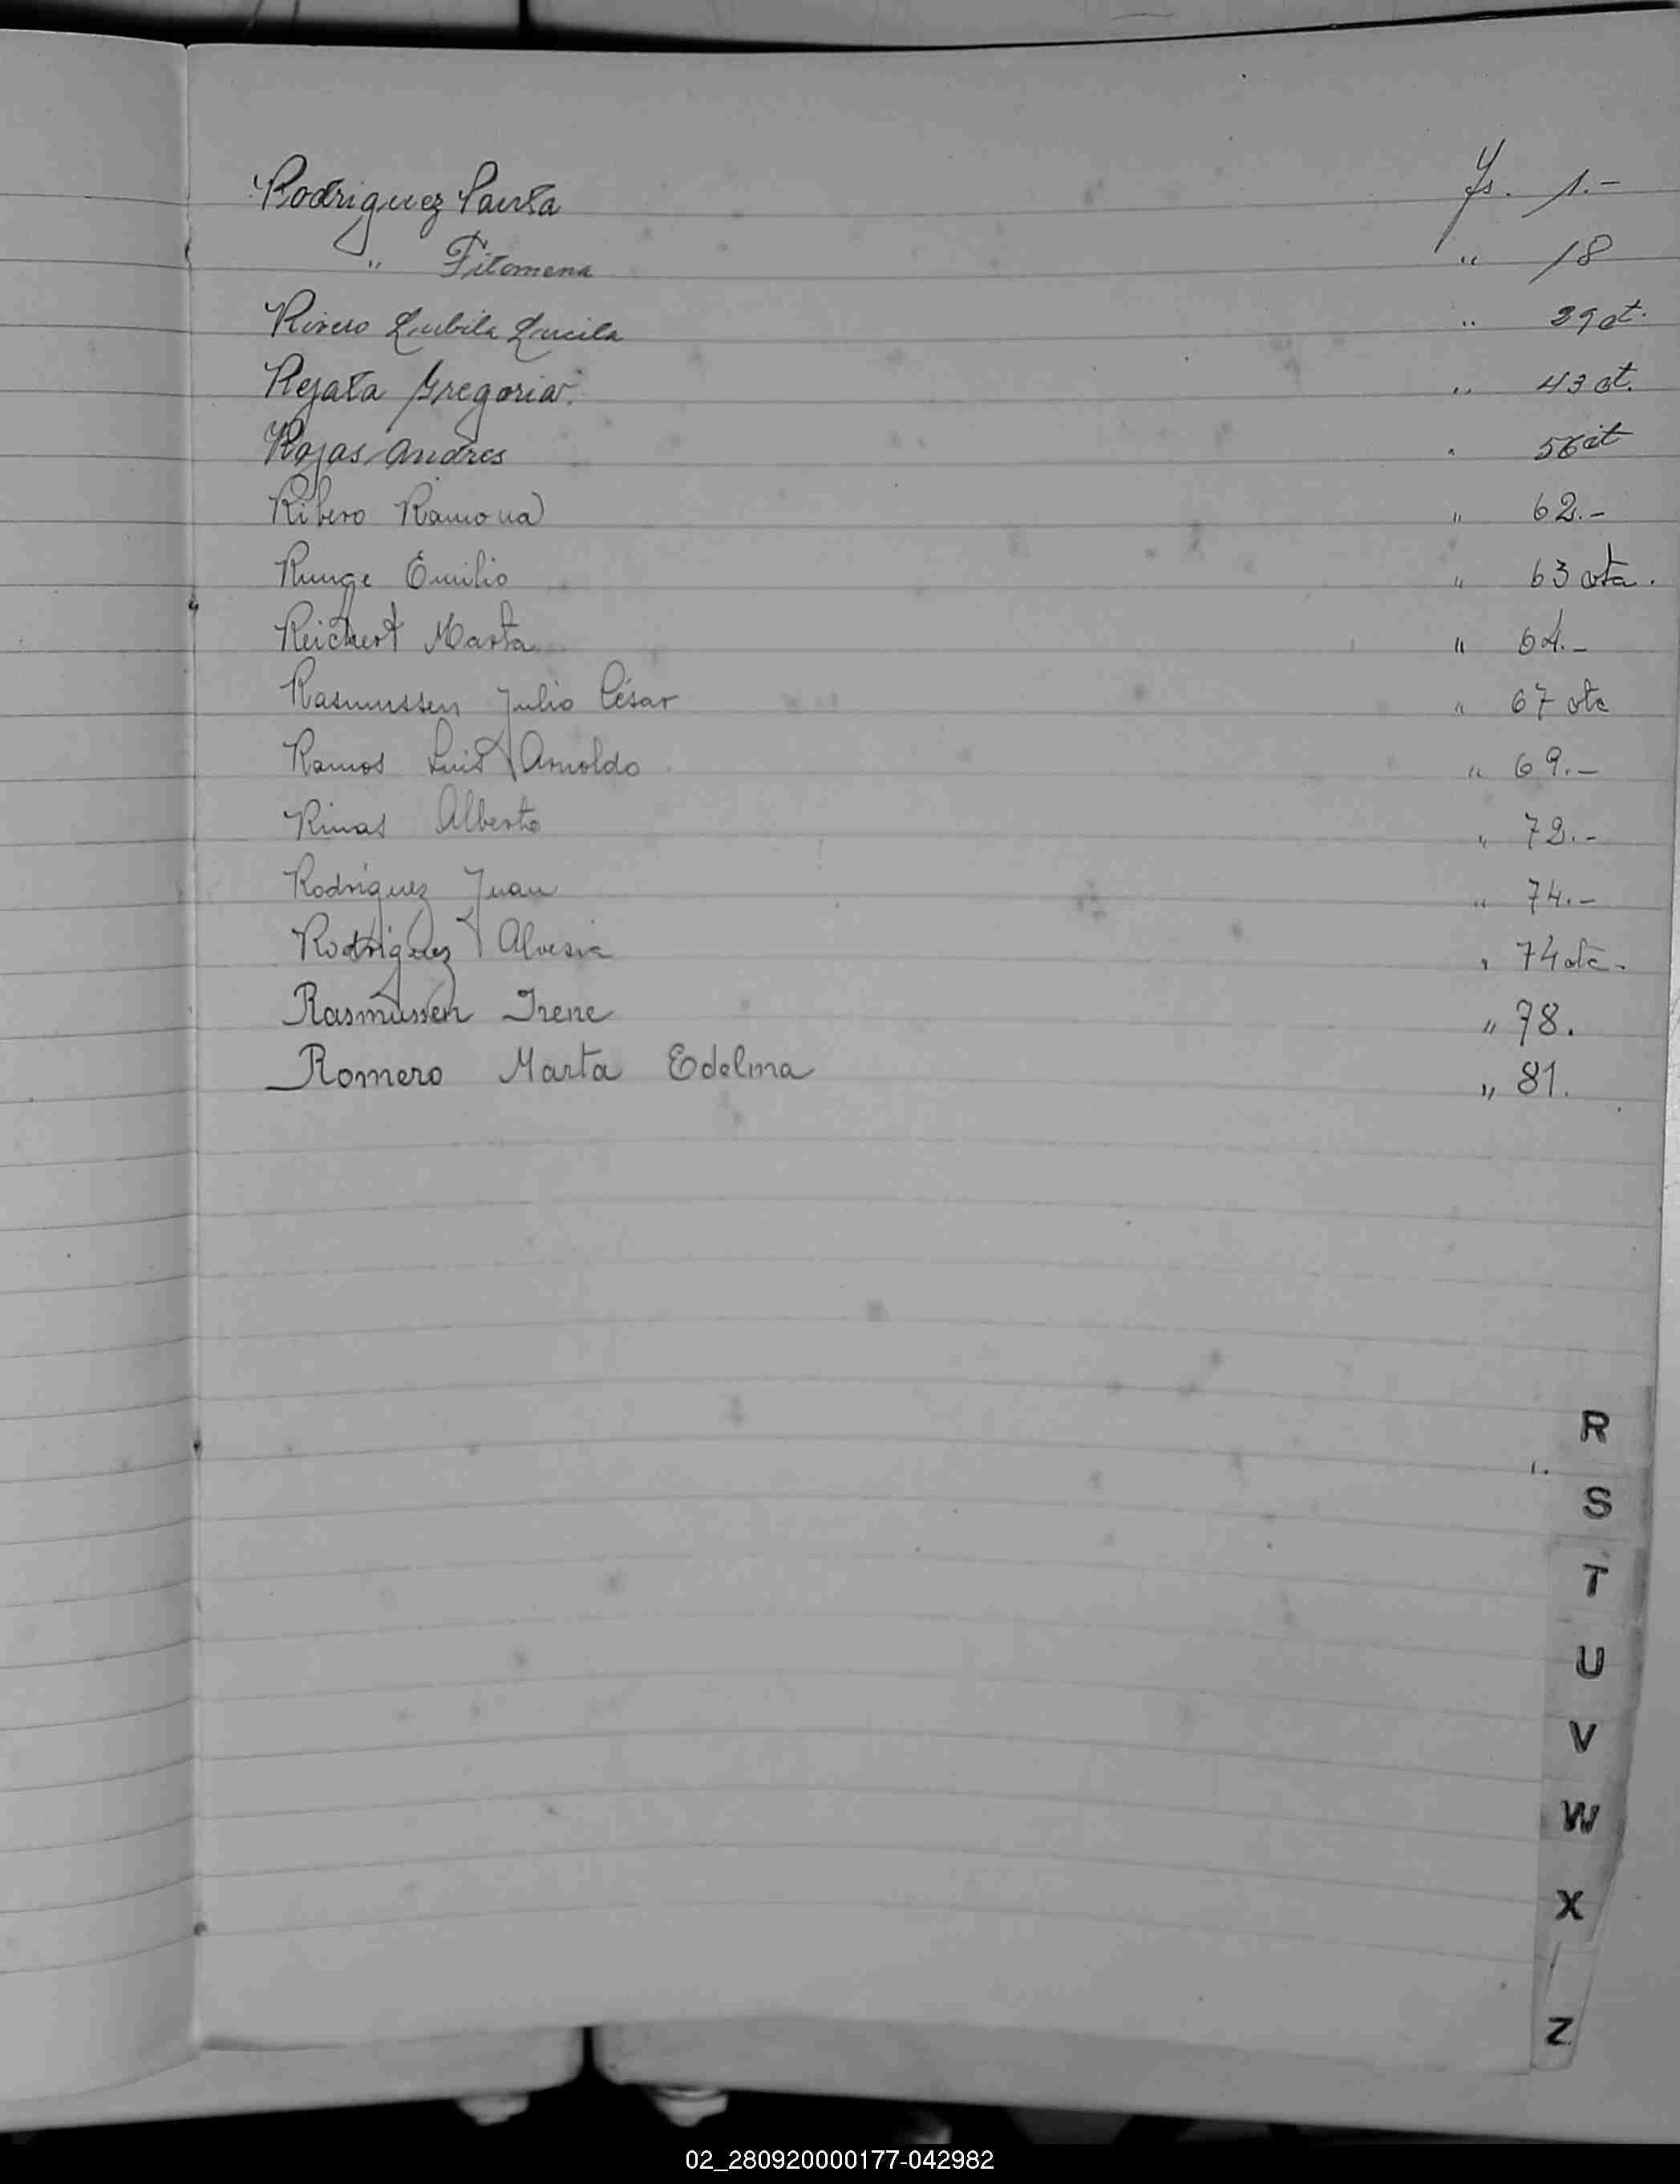 Rodriguez Santa Fs. 1.-
" Filomena " 18
Rivero Lubila Lucila " 39 vt.
Rejala Gregoria " 43 vt.
Rojas Andres " 56 vt
Ribero Ramona " 62.-
Runge Emilio " 63 vta.
Reichert Marta " 64.-
Rasmussen Julio César " 67 vta
Ramos Luis Arnoldo " 69.-
Rivas Alberto " 72.-
Rodriguez Juan " 74.-
Rodriguez " 74 vta.
Rasmussen Irene " 78.
Romero Marta Edelma " 81.
R
S
T
U
V
W
X
Z
02_280920000177-042982